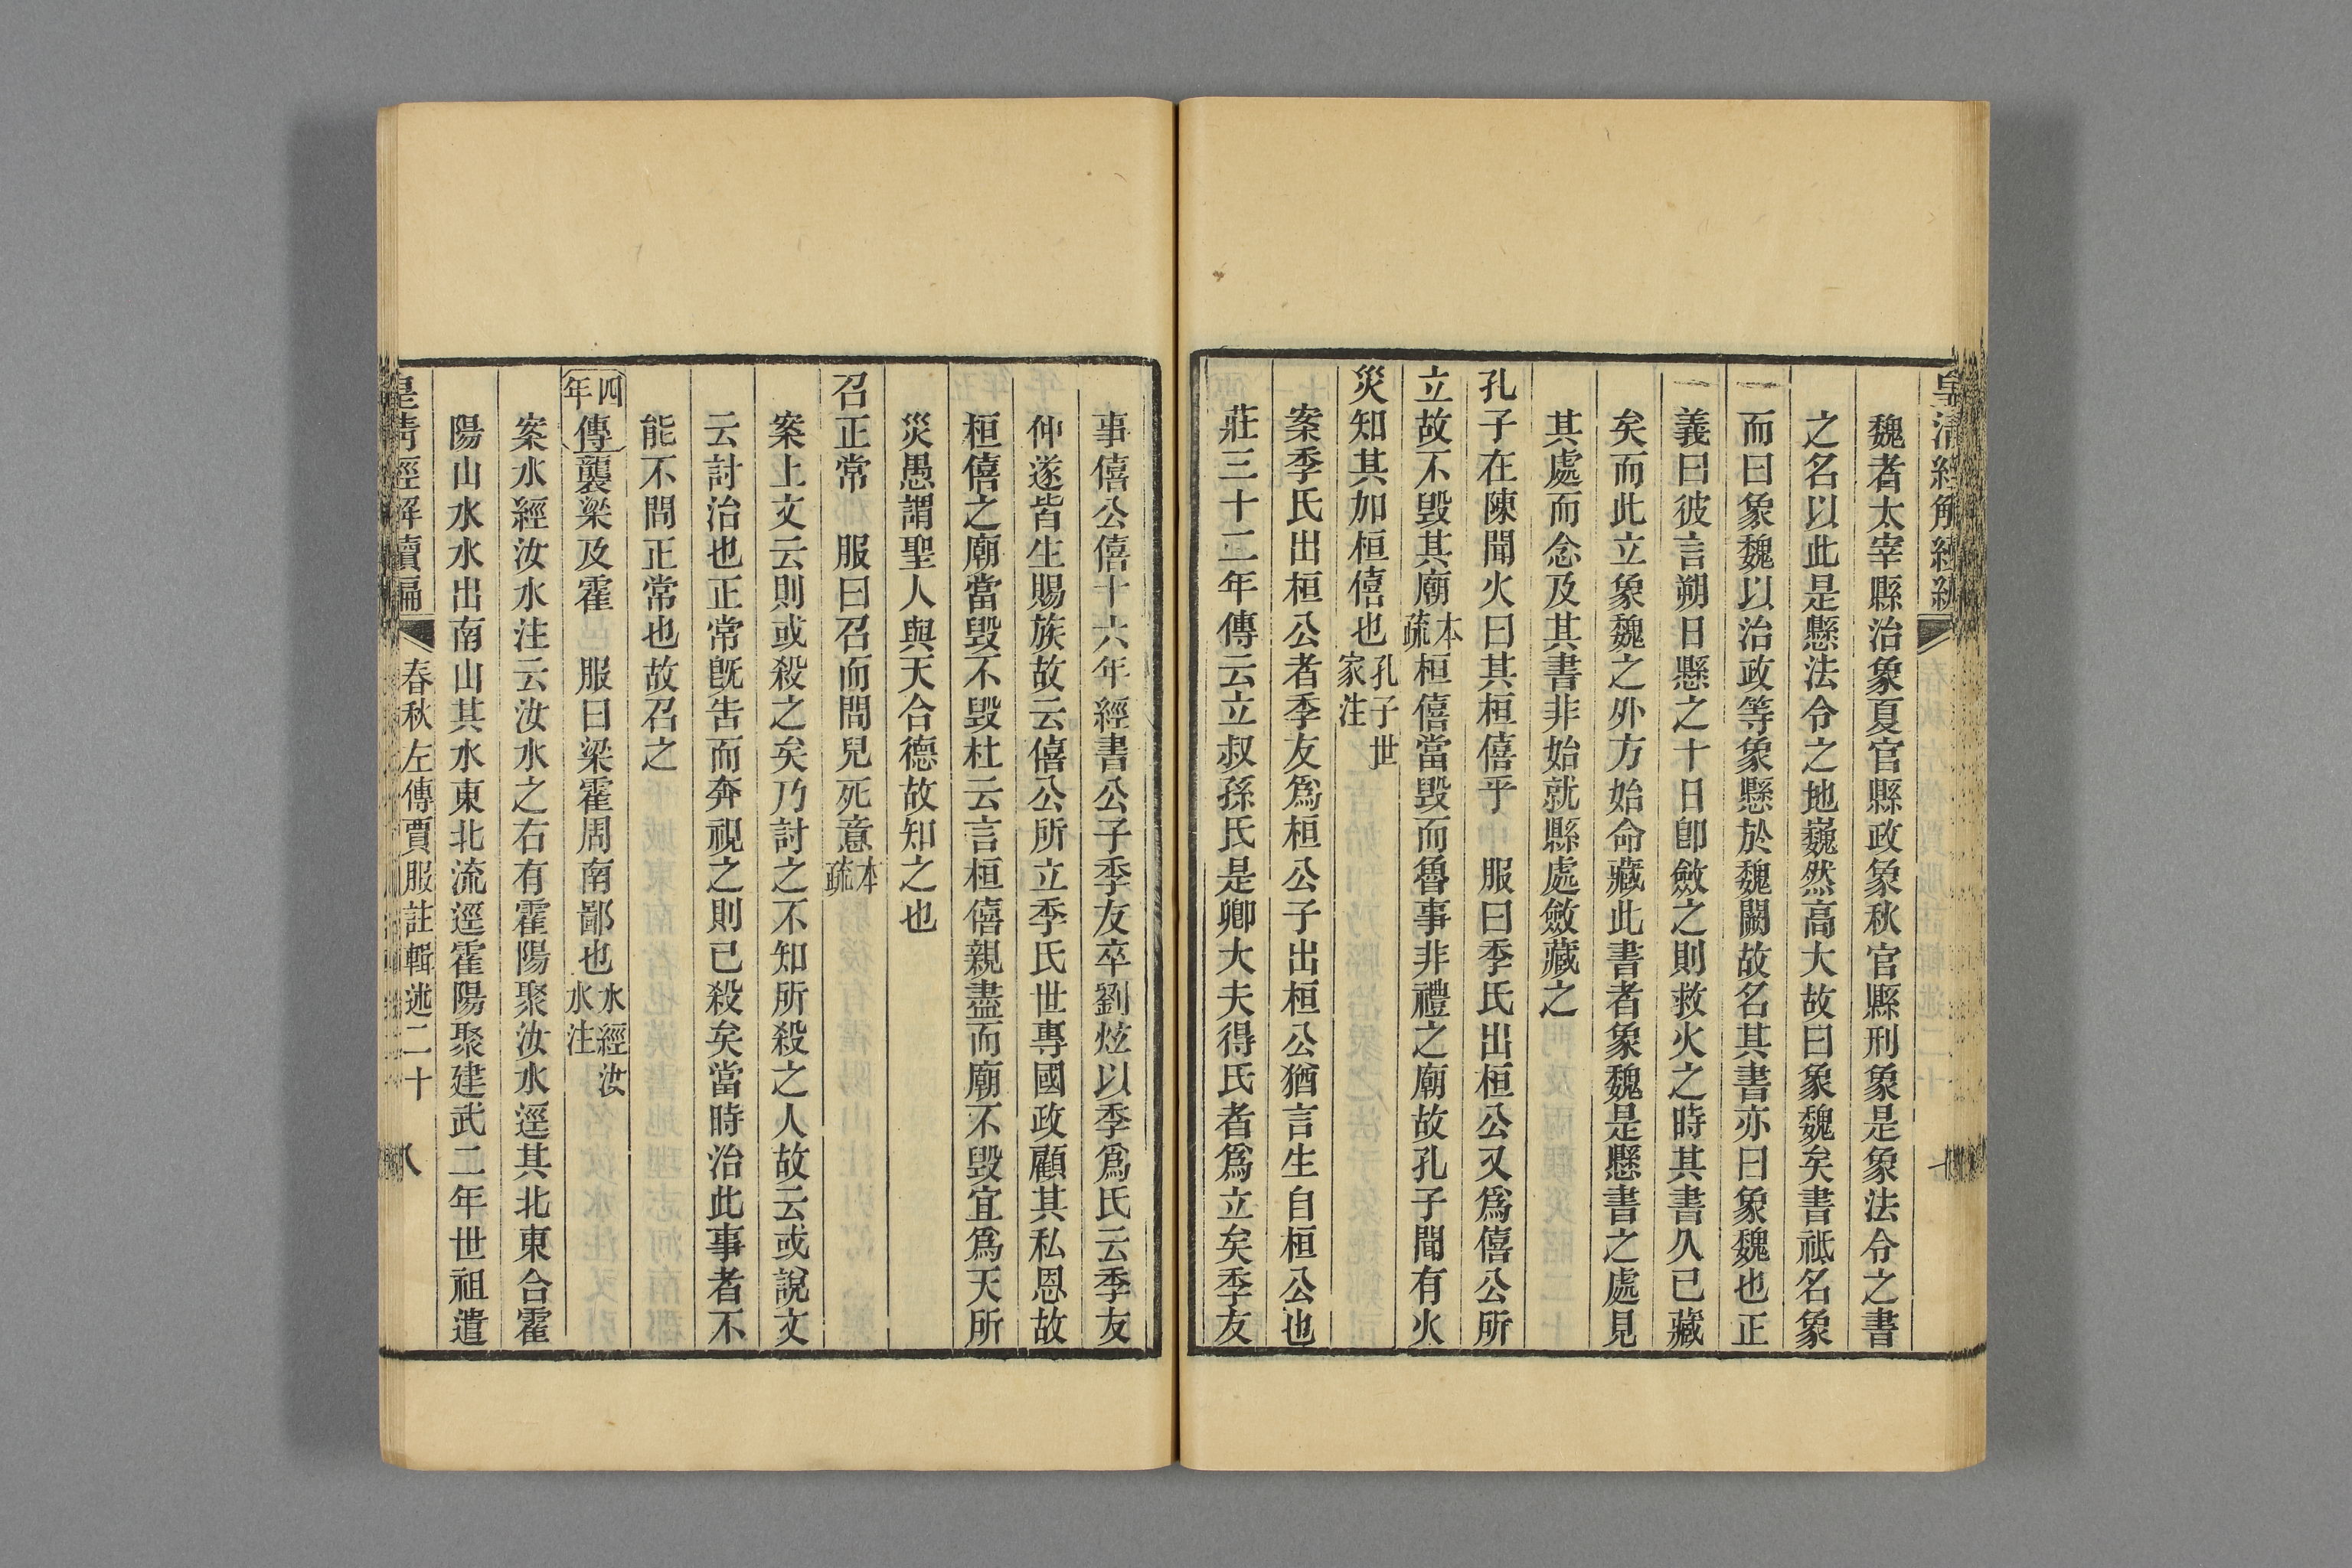 皇清經解續編
魏者太宰縣治象夏官縣政象秋官縣刑象是象法令之書
之名以此是懸法令之地巍然高大故曰象魏矣書祗名象
而曰象魏以治政等象懸於魏闕故名其書亦曰象魏也正
義曰彼言朔日懸之十日卽斂之則救火之時其書久已藏
矣而此立象魏之外方始命藏此書者象魏是懸書之處見
其處而念及其書非始就縣處斂藏之
孔子在陳聞火曰其桓僖乎 服曰季氏出桓公又爲僖公所
立故不毀其廟本疏桓僖當毀而魯事非禮之廟故孔子聞有火
災知其加桓僖也孔子世家注
案季氏出桓公者季友爲桓公子出桓公猶言生自桓公也
莊三十二年傳云立叔孫氏是卿大夫得氏者爲立矣季友
事僖公僖十六年經書公子季友卒劉炫以季爲氏云季友
仲遂皆生賜族故云僖公所立季氏世專國政顧其私恩故
桓僖之廟當毀不毀杜云言桓僖親盡而廟不毀宜爲天所
災愚謂聖人與天合德故知之也
召正常 服曰召而問兒死意本疏
案上文云則或殺之矣乃討之不知所殺之人故云或說文
云討治也正常旣吿而奔視之則已殺矣當時治此事者不
能不問正常也故召之
四年傳襲梁及霍 服曰梁霍周南鄙也水經汝水注
案水經汝水注云汝水之右有霍陽聚汝水逕其北東合霍
陽山水水出南山其水東北流逕霍陽聚建武二年世祖遣
皇清經解續編 春秋左傳賈服註輯述二十 八